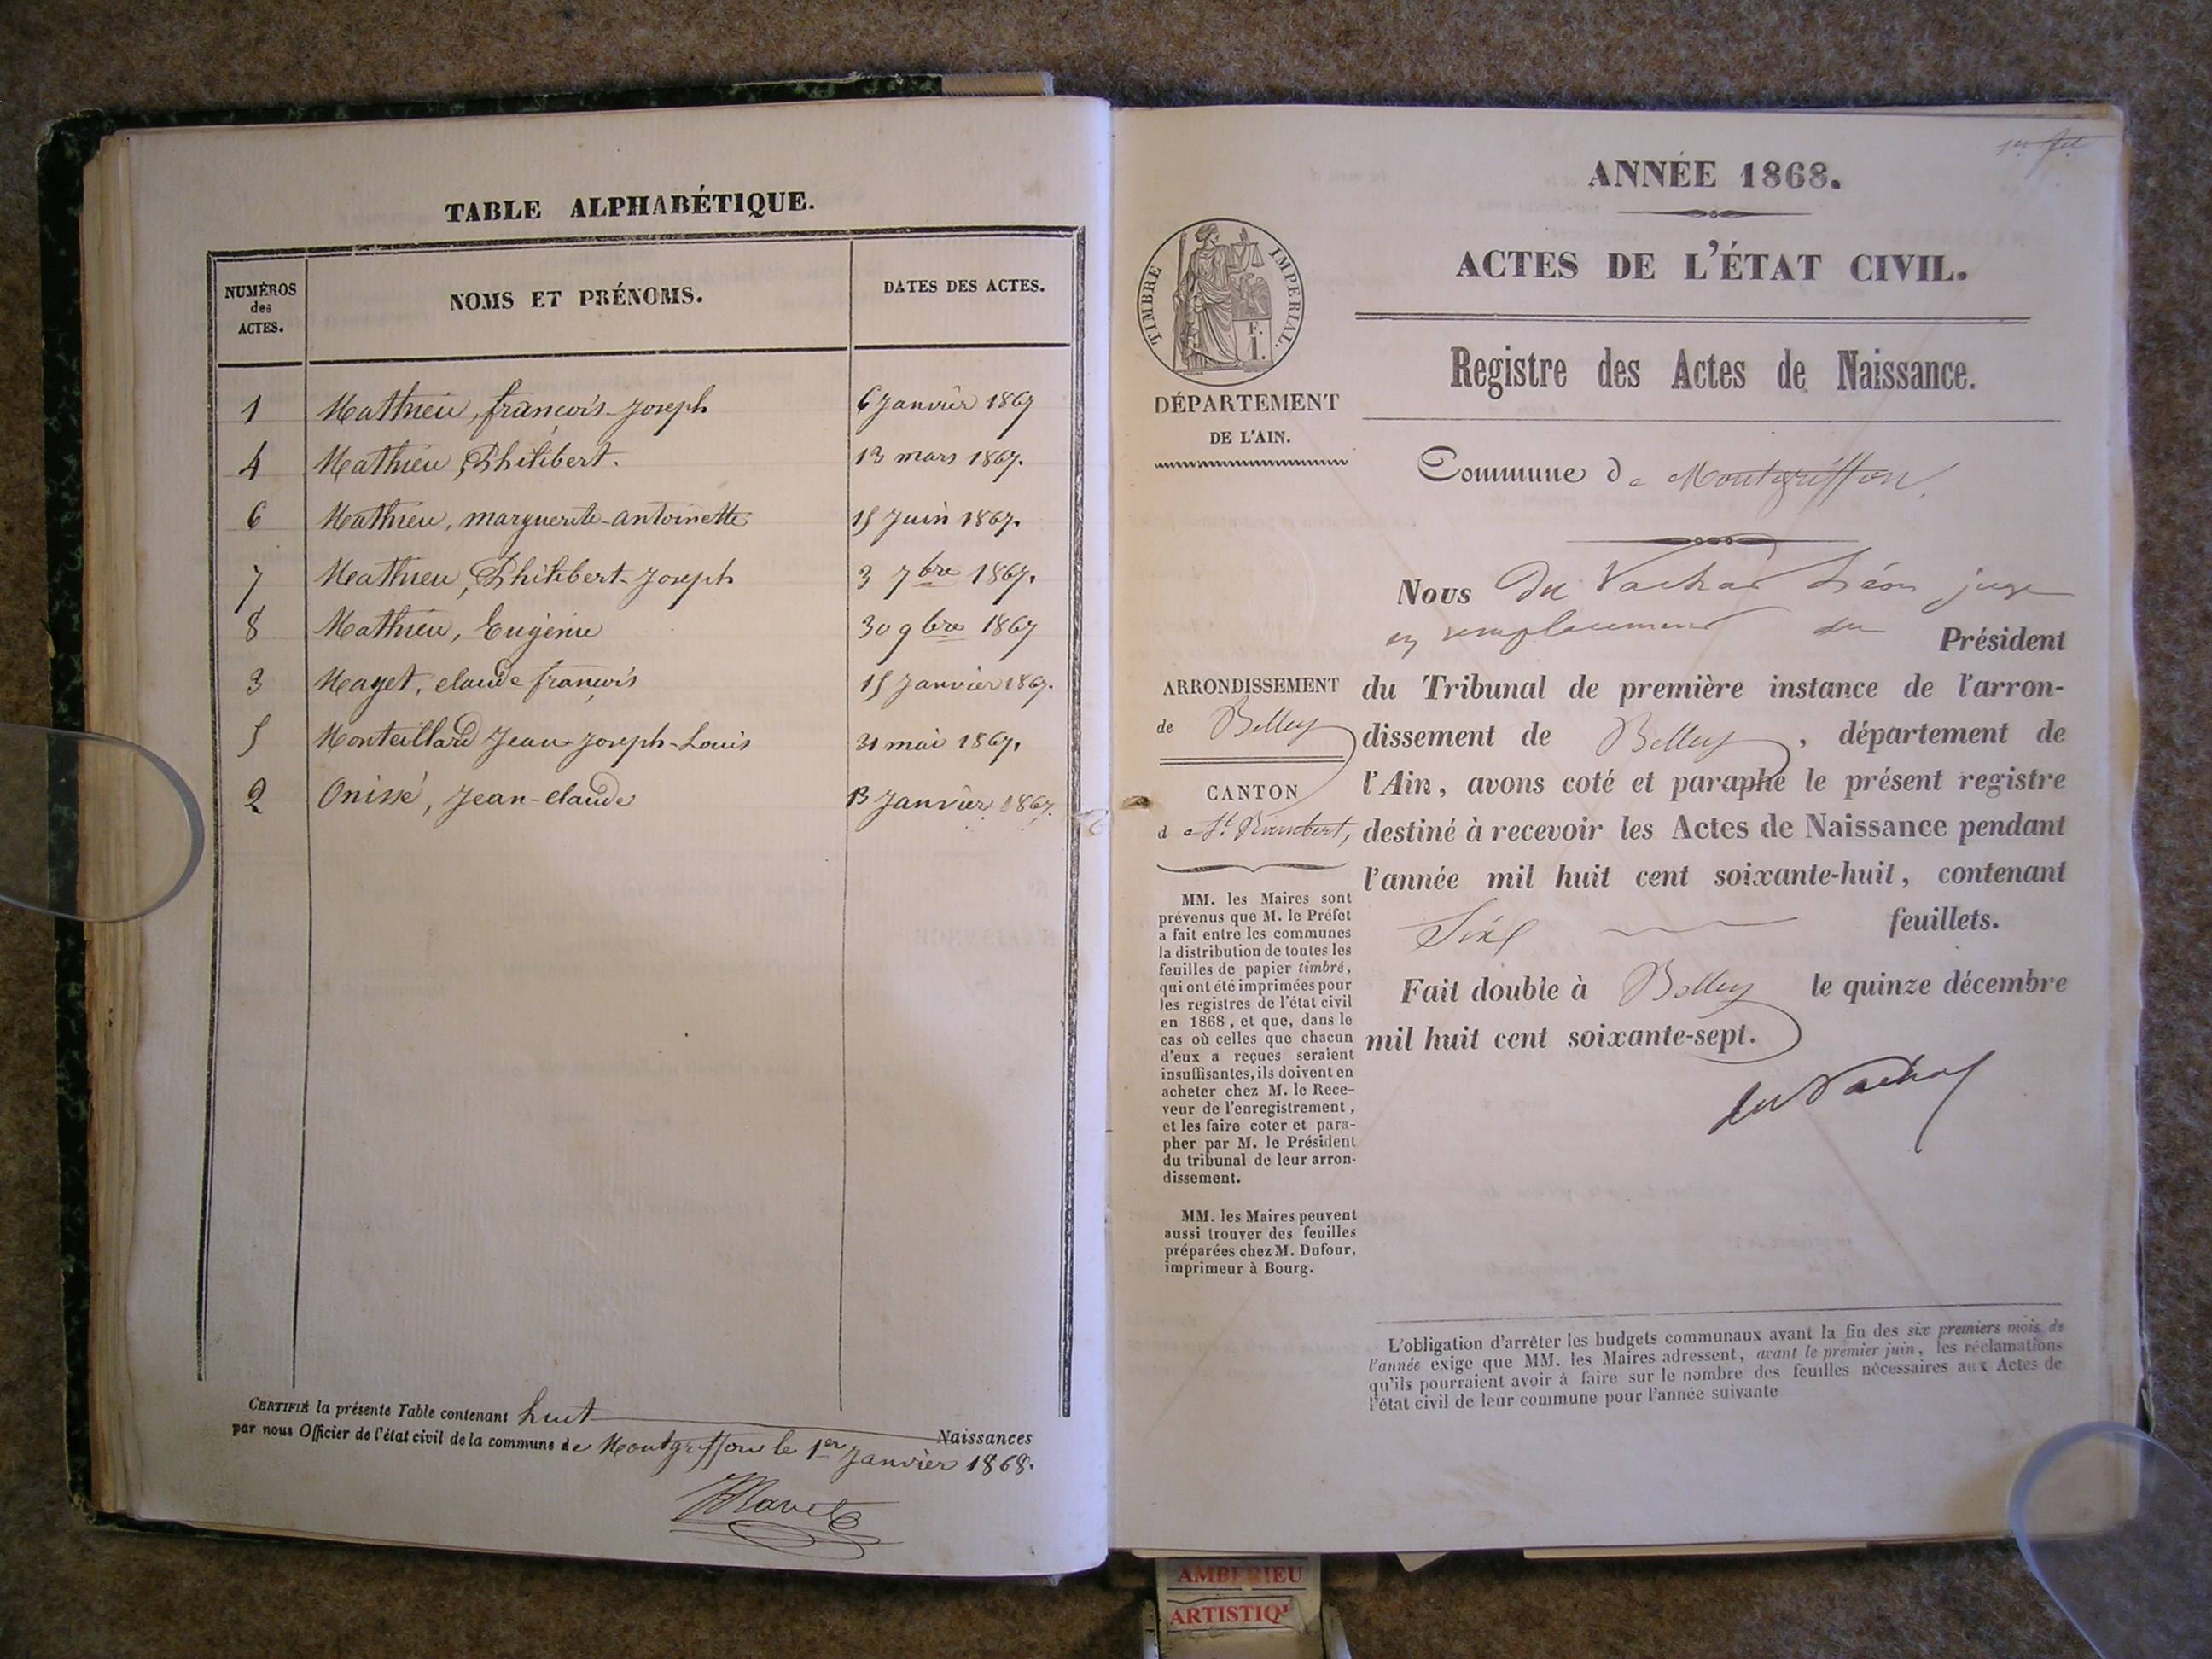 TABLE ALPHABÉTIQUE.
NUMÉROS des ACTES. NOMS ET PRÉNOMS. DATES DES ACTES.
1 Mathieu, françois-Joseph 6 Janvier 1867
4 Mathieu, Philibert. 13 mars 1867.
6 Mathieu, marguerite-antoinette 15 Juin 1867.
7 Mathieu, Philibert-Joseph 3 7bre 1867.
8 Mathieu, Eugénie 30 9bre 1867
3 Mayet, claude françois 15 Janvier 1867.
5 Monteillard Jean-Joseph-Louis 31 mai 1867.
2 Onissé, Jean-claude 13 Janvier 1867.
CERTIFIÉ la présente Table contenant huit Naissances
par nous Officier de l'état civil de la commune de Montgriffon le 1er Janvier 1868.
1er
ANNÉE 1868.
ACTES DE L'ÉTAT CIVIL.
Registre des Actes de Naissance.
TIMBRE IMPERIAL.
F.
1.
DÉPARTEMENT
DE L'AIN.
Commune de Montgriffon.
Nous Du Vachat Léon juge
en remplacement du Président
du Tribunal de première instance de l'arron-
dissement de Belley, département de
l'Ain, avons coté et paraphé le présent registre
destiné à recevoir les Actes de Naissance pendant
l'année mil huit cent soixante-huit, contenant
Six feuillets.
Fait double à Belley le quinze décembre
mil huit cent soixante-sept.
du Vachat
ARRONDISSEMENT
de Belley
CANTON
de St. Rambert,
MM. les Maires sont
prévenus que M. le Préfet
a fait entre les communes
la distribution de toutes les
feuilles de papier timbré,
qui ont été imprimées pour
les registres de l'état civil
en 1868, et que, dans le
cas où celles que chacun
d'eux a reçues seraient
insuffisantes, ils doivent en
acheter chez M. le Rece-
veur de l'enregistrement,
et les faire coter et para-
pher par M. le Président
du tribunal de leur arron-
dissement.
MM. les Maires peuvent
aussi trouver des feuilles
préparées chez M. Dufour,
imprimeur à Bourg.
L'obligation d'arrêter les budgets communaux avant la fin des six premiers mois de
l'année exige que MM. les Maires adressent, avant le premier juin, les réclamations
qu'ils pourraient avoir à faire sur le nombre des feuilles nécessaires aux Actes de
l'état civil de leur commune pour l'année suivante
AMBERIEU
ARTISTIQ